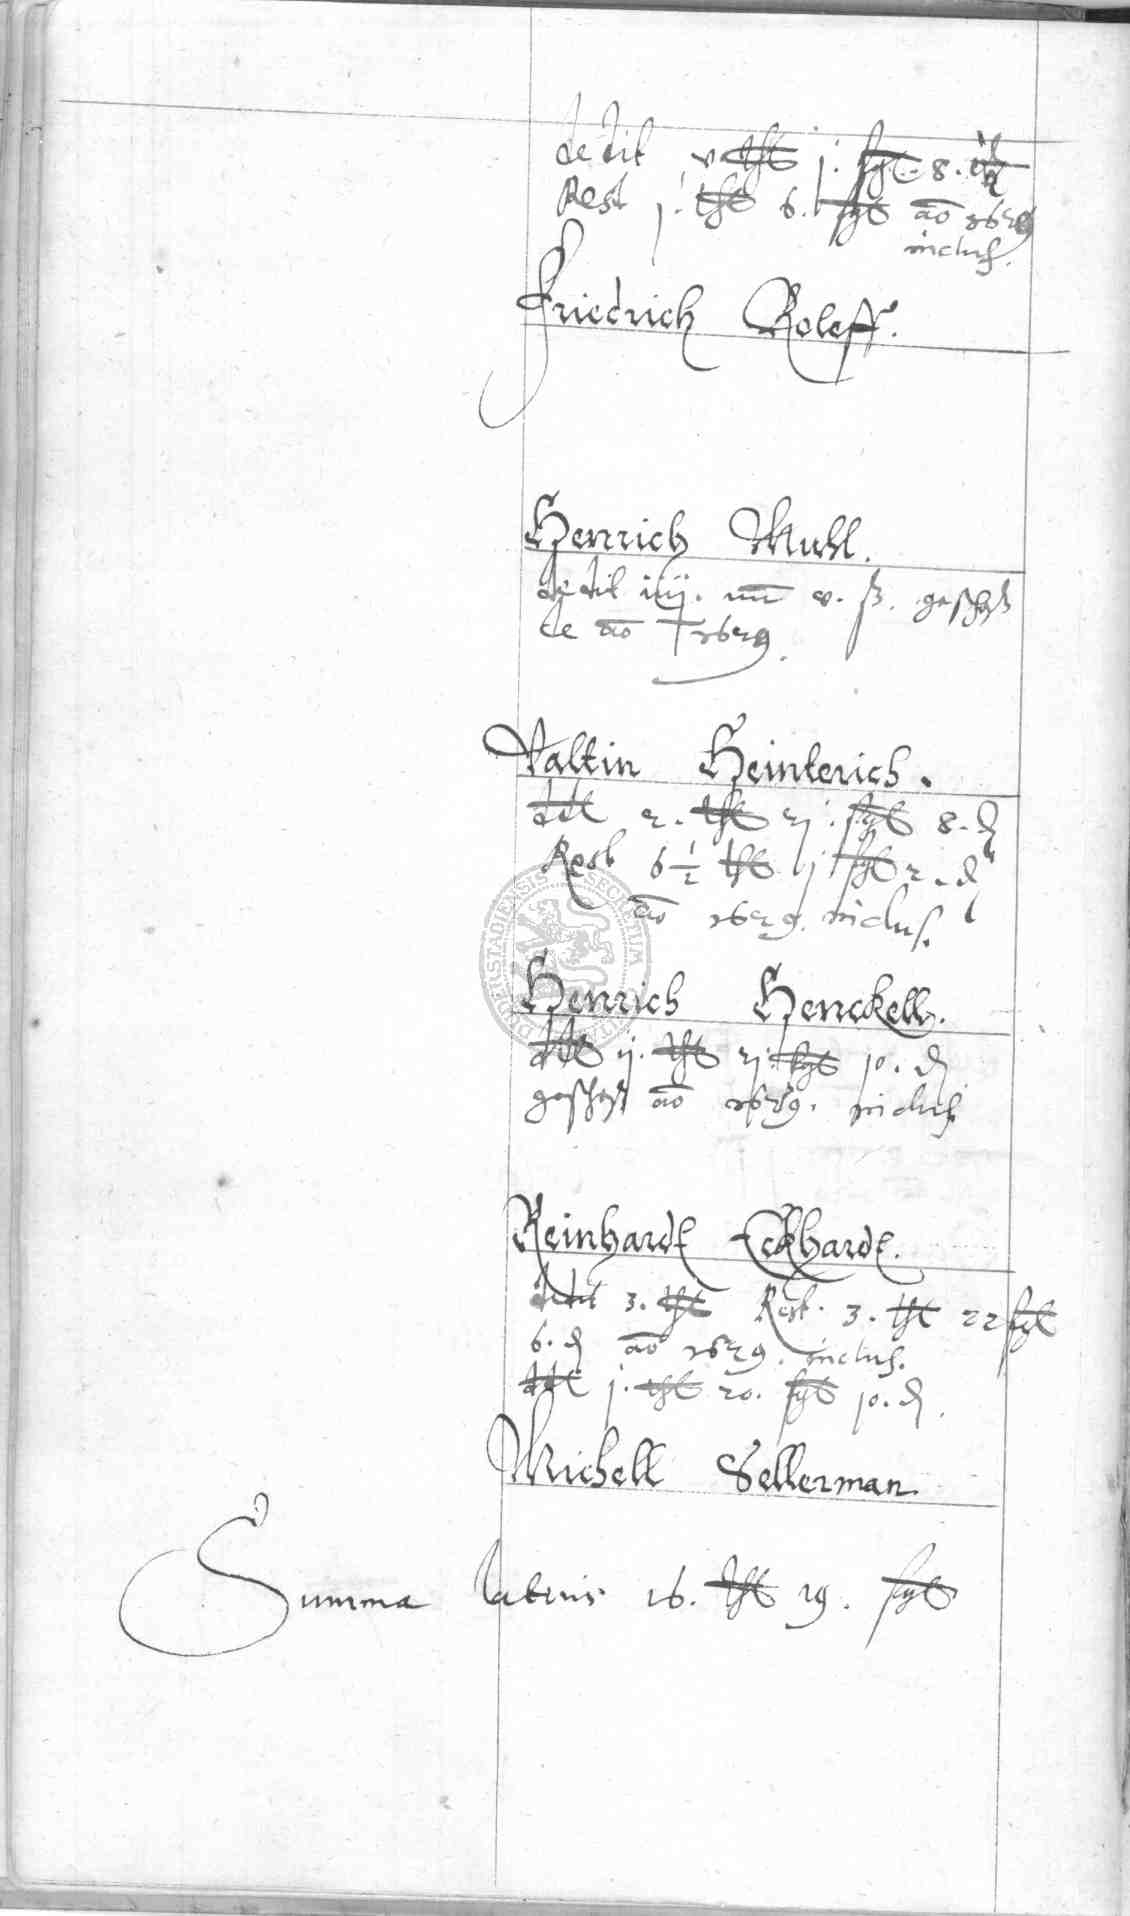 dedit v thl j. sgl. 8. d
Rest j. thl 6. sgl ao 1629
inclus.
Friedrich Roleff.
Henrich Muhl.
dedit iiij. mr v. ß. geschoß
de ao 1629.
Valtin Heinterich.
ddt 2. thl 2j. sgl 8. d
Rest 6 1/2 thl j sgl 2. d
ao 1629. inclus.
Henrich Henckell.
ddt ij. thl 2j. sgl 10. d
geschoß ao 1629. inclus
Reinhardt Eckhardt.
dedit 3. thl Rest. 3. thl 22 sgl
6. d ao 1629. inclus.
ddt j. thl 20. sgl 10. d.
Michell Sellerman.
Summa lateris 16. thl 19. sgl
DUDERSTADIENSIS SECRETUM